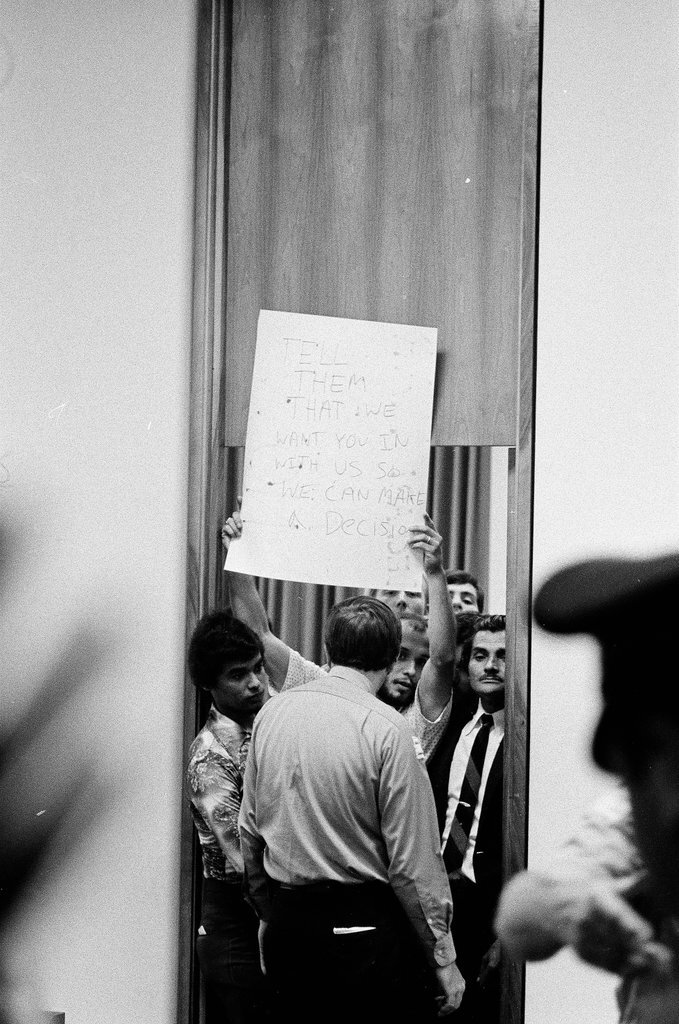 TELL
THEM
THAT WE
WANT YOU IN
WITH US SO
WE CAN MAKE
A Decision